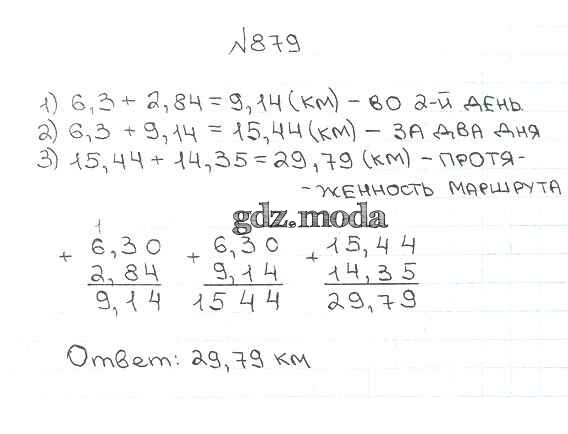 №879
1) 6,3 + 2,84 = 9,14 (км) – во 2-й день
2) 6,3 + 9,14 = 15,44 (км) – за два дня
3) 15,44 + 14,35 = 29,79 (км) – протя-
- женность маршрута
gdz.moda
1
+ 6,30 + 6,30 + 15,44
2,84 9,14 14,35
9,14 15 44 29,79
Ответ: 29,79 км